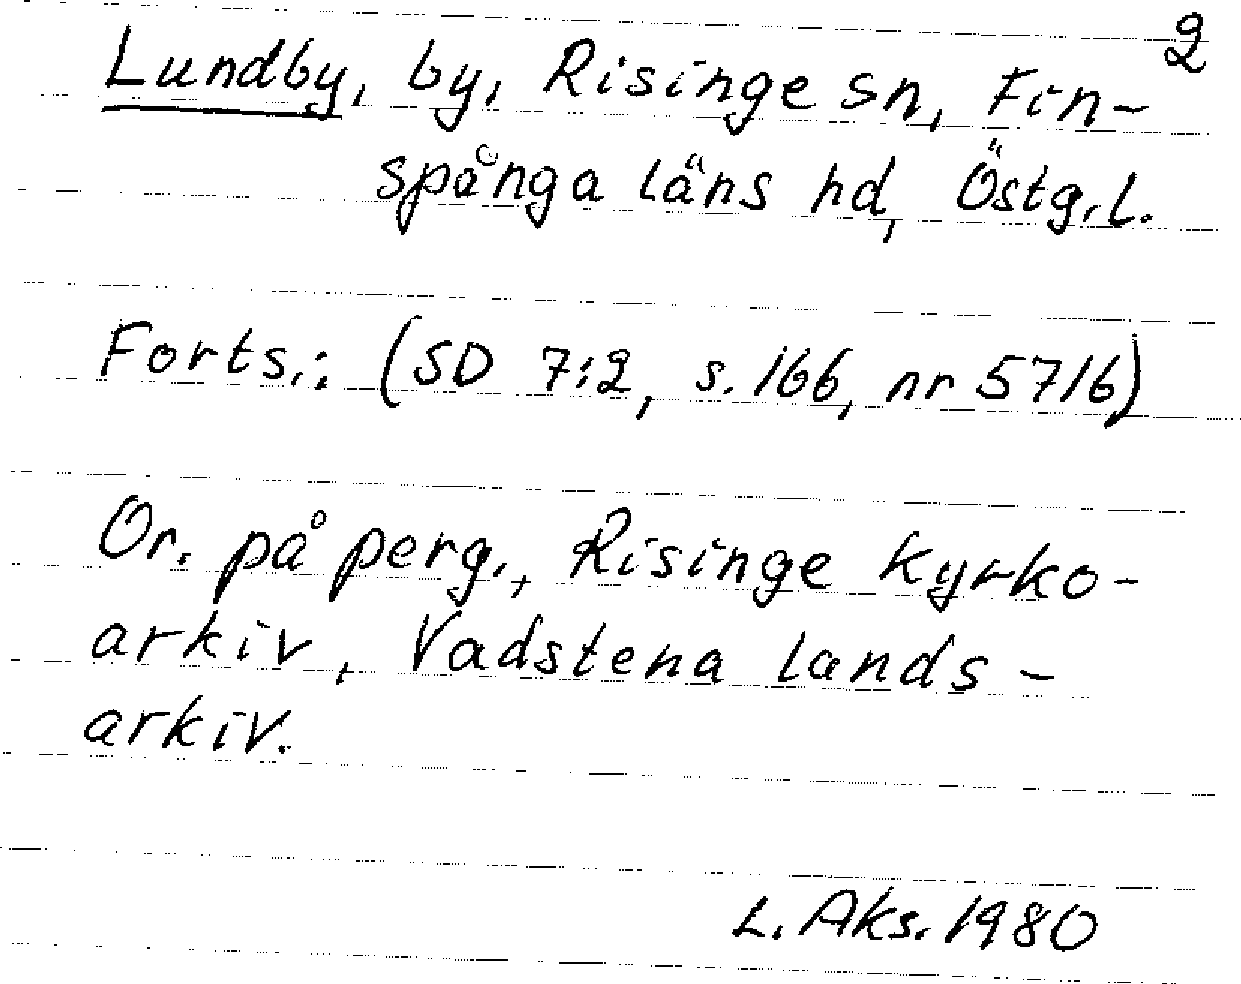 2
Lundby, by, Risinge sn, Fin-
spånga läns hd, Östg.l.
Forts.: (SD 7:2, s. 166, nr 5716)
Or. på perg., Risinge kyrko-
arkiv, Vadstena lands-
arkiv.
L. Aks. 1980